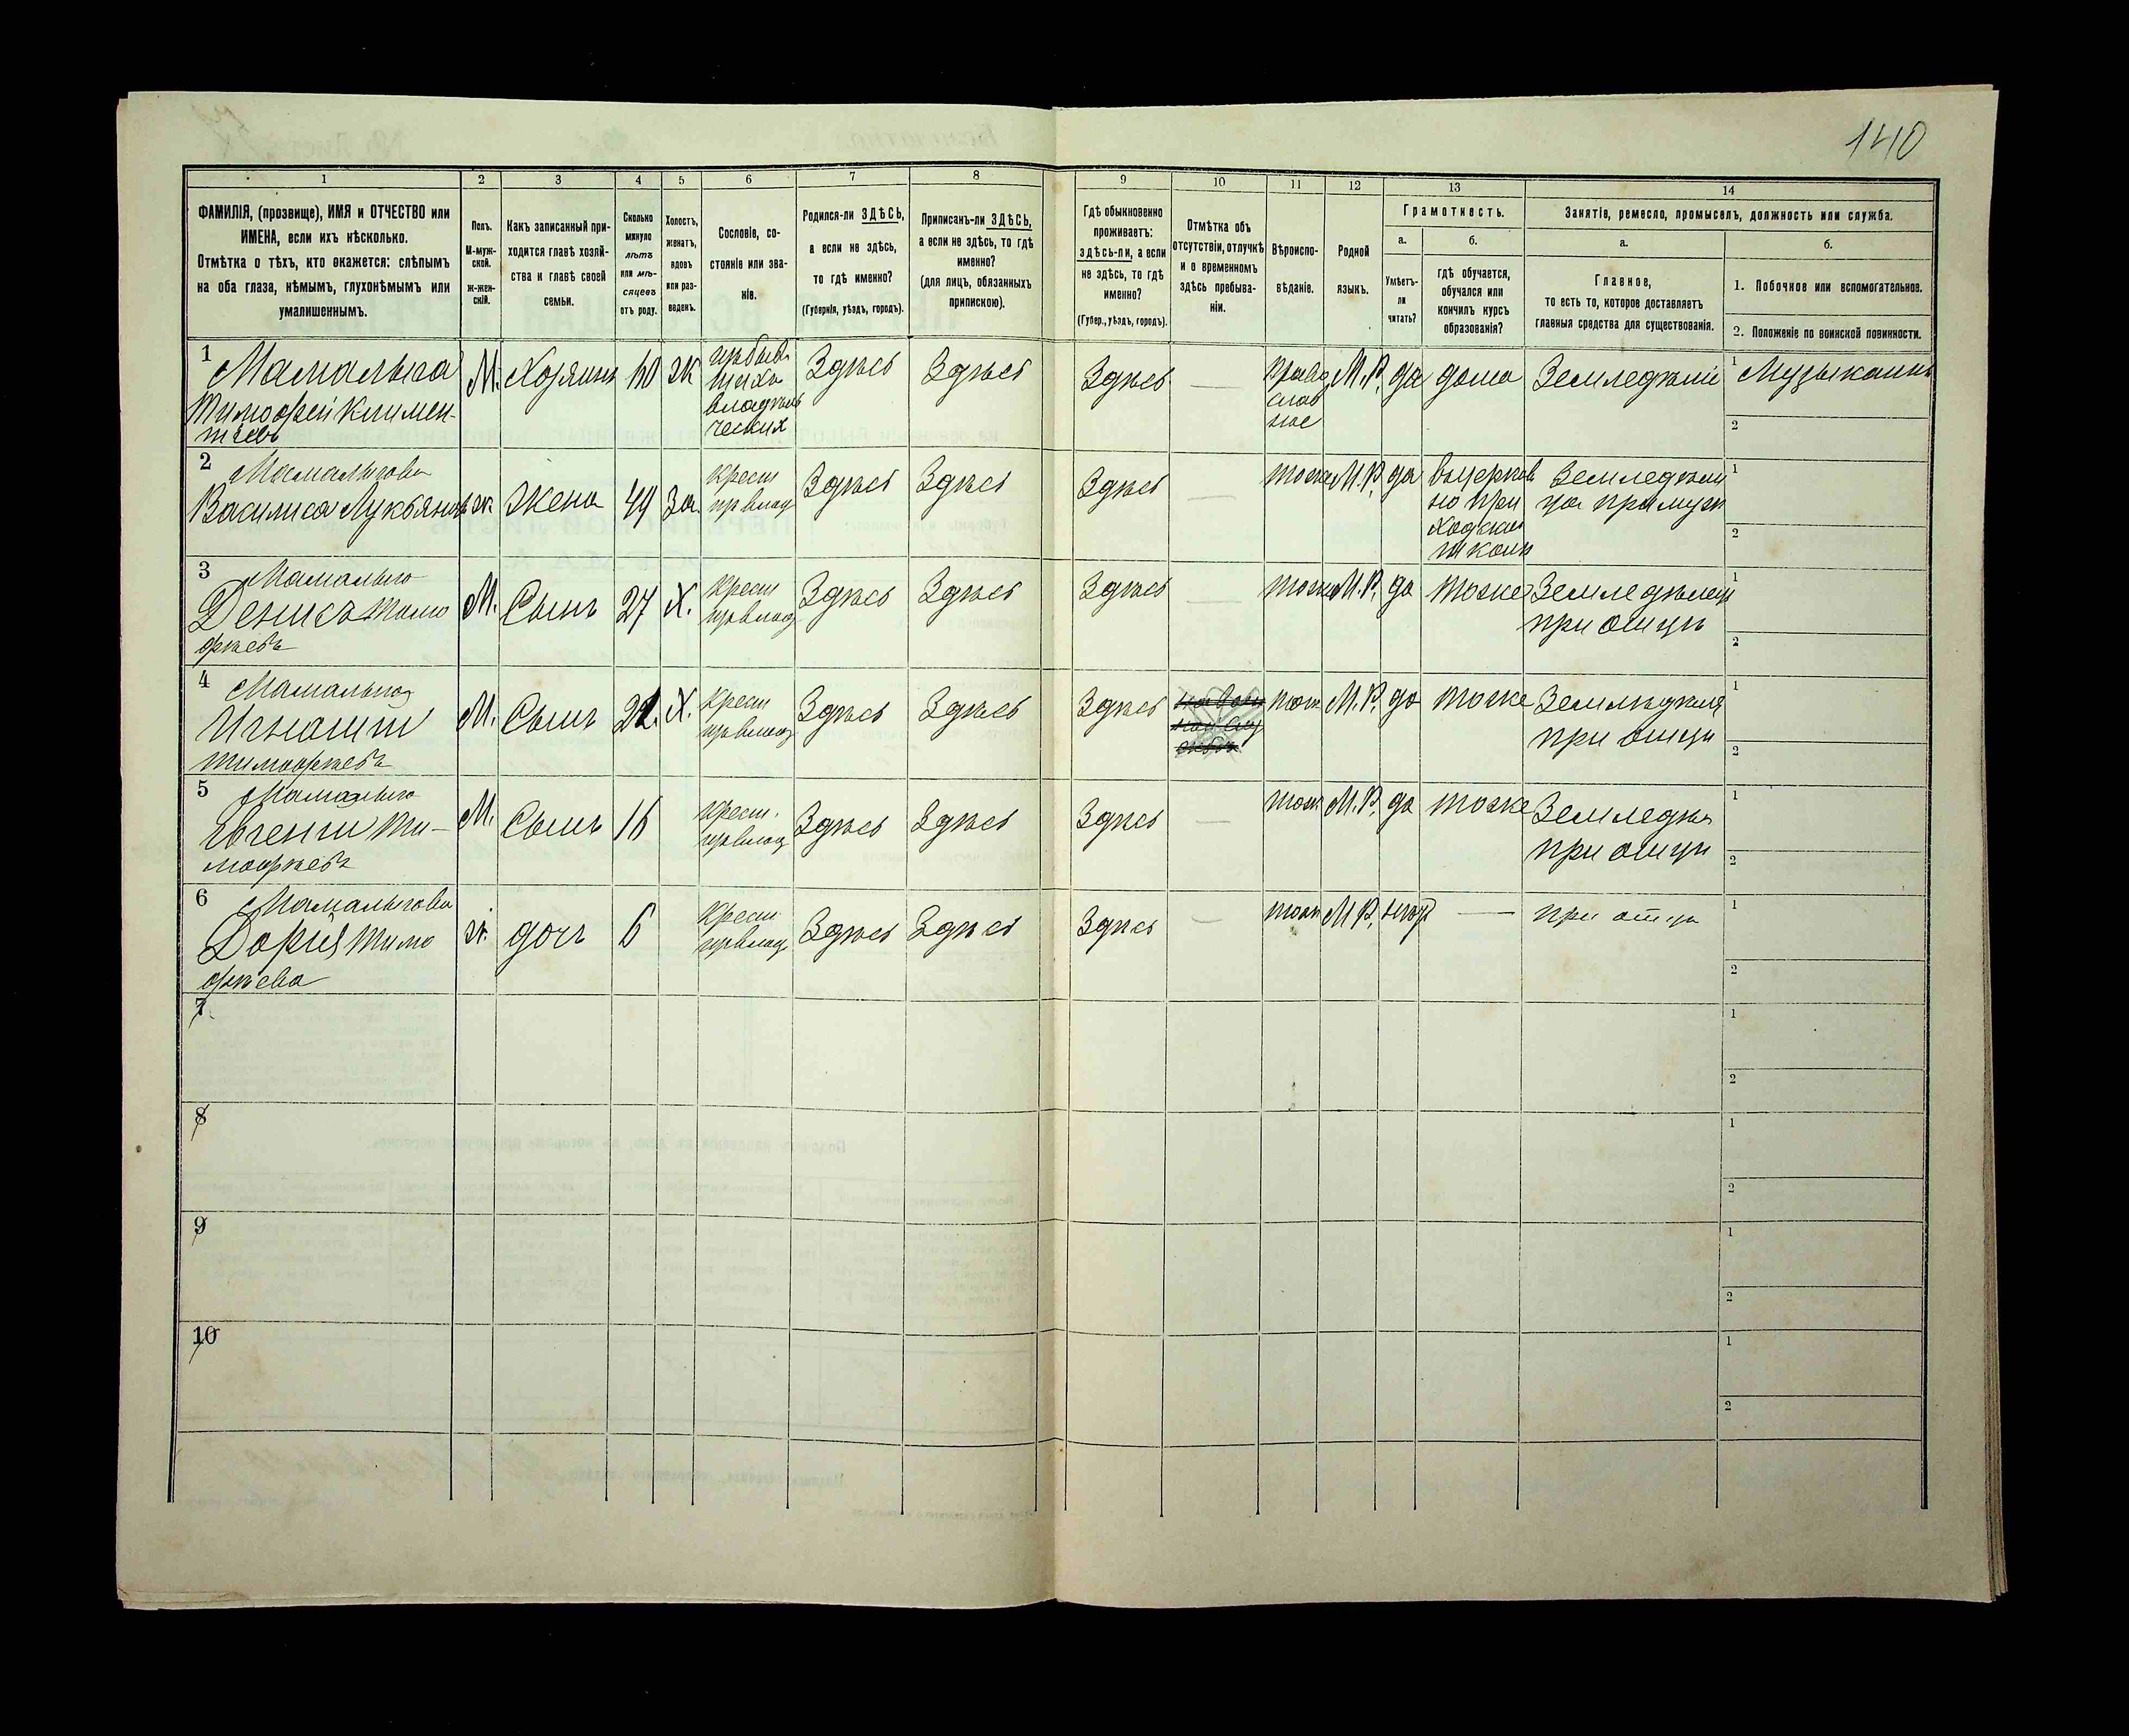 140
1 2 3 4 5 6 7 8 9 10 11 12 13 14
ФАМИЛІЯ, (прозвище), ИМЯ и ОТЧЕСТВО или
ИМЕНА, если ихъ нѣсколько.
Отмѣтка о тѣхъ, кто окажется: слѣпымъ
на оба глаза, нѣмымъ, глухонѣмымъ или
умалишеннымъ.
Полъ.
М-муж-
ской.
ж-жен-
скій.
Какъ записанный при-
ходится главѣ хозяй-
ства и главѣ своей
семьи.
Сколько
минуло
лѣтъ
или мѣ-
сяцевъ
отъ роду.
Холостъ,
женатъ,
вдовъ
или раз-
веденъ.
Сословіе, со-
стояніе или зва-
ніе.
Родился-ли ЗДѢСЬ,
а если не здѣсь,
то гдѣ именно?
(Губернія, уѣздъ, городъ).
Приписанъ-ли ЗДѢСЬ,
а если не здѣсь, то гдѣ
именно?
(для лицъ, обязанныхъ
припискою).
Гдѣ обыкновенно
проживаетъ:
здѣсь-ли, а если
не здѣсь, то гдѣ
именно?
(Губер., уѣздъ, городъ).
Отмѣтка объ
отсутствіи, отлучкѣ
и о временномъ
здѣсь пребыва-
ніи.
Вѣроиспо-
вѣданіе.
Родной
языкъ.
Грамотность.
а.
Умѣетъ-
ли
читать?
б.
гдѣ обучается,
обучался или
кончилъ курсъ
образованія?
Занятіе, ремесло, промыселъ, должность или служба.
а.
Главное,
то есть то, которое доставляетъ
главныя средства для существованія.
б.
1. Побочное или вспомогательное.
2. Положеніе по воинской повинности.
1 Мамалыга
Тимофей Климен-
тіевъ
М. Хозяинъ ж
Здѣсь Здѣсь Здѣсь —
Право
слав
ное
М.Р. да дома Земледѣлій
1 Музыкантъ
2
2 Мамалыгова
Василиса Лукьянов
ж. Жена 44 За
крест
Здѣсь Здѣсь Здѣсь —
тоже М.Р. да
вцерков
но при
ходской
школѣ
Земледѣли
ца при мужѣ
1
2
3 Мамалыга
Денисъ Тимо
фѣевъ
М. Сынъ 27 Х.
крест
Здѣсь Здѣсь Здѣсь —
тоже М.Р. да тоже
Земледѣлецъ
при отцѣ
1
2
4 Мамалыга
Игнатій
Тимофѣевъ
М. Сынъ Х.
крест
Здѣсь Здѣсь Здѣсь
тоже М.Р. да тоже
при отцѣ
1
2
5 Мамалыга
Евгеній Ти-
мофѣевъ
М. Сынъ 16
крест.
Здѣсь Здѣсь Здѣсь —
тоже М.Р. да тоже
Земледѣл
при отцѣ
1
2
6 Мамалыгова
Дорія Тимо
фѣева
ж. дочь 6
крест
Здѣсь Здѣсь Здѣсь —
тоже М.Р. —
при отцѣ
1
2
7
1
2
8
1
2
9
1
2
10
1
2